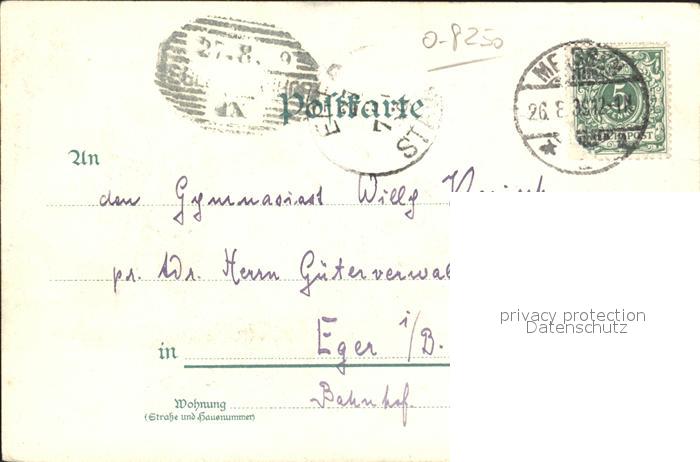 27. 8. 9
IX
0-8250
26. 8. 9
5
REICHSPOST
Postkarte
An
den Gymnasiast Willy
pr. Adr. Herrn Güterverwal
privacy protection
Datenschutz
in Eger i/B.
Wohnung Bahnhof.
(Straße und Hausnummer)